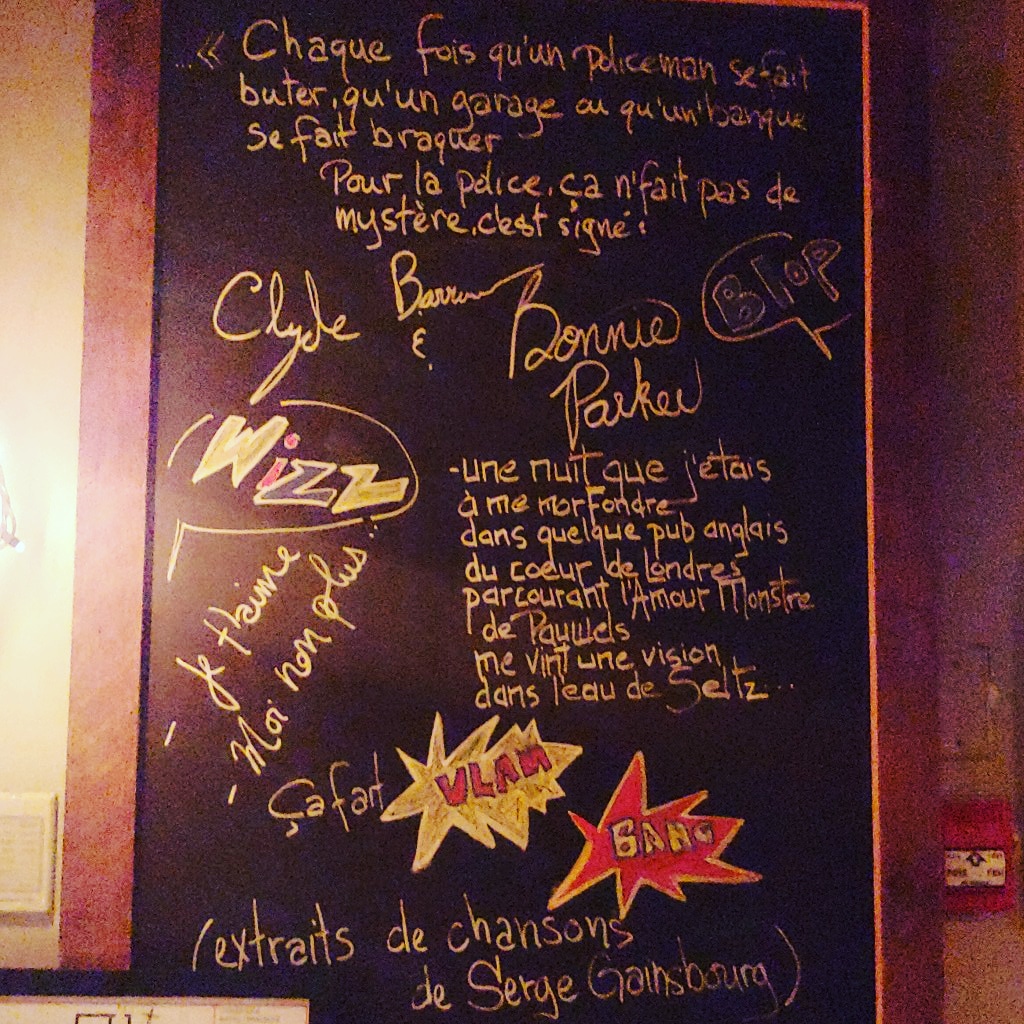 ...« Chaque fois qu'un policeman se fait
buter, qu'un garage ou qu'un' banque
se fait braquer
Pour la police, ça n'fait pas de
mystère, c'est signé :
Clyde Barrow
&
Bonnie
Parker
BLOP
Wizz
- Je t'aime
- Moi non plus !
-une nuit que j'étais
à me morfondre
dans quelque pub anglais
du coeur de Londres
parcourant l'Amour Monstre
de Pauwels
me vint une vision
dans l'eau de Seltz...
Ça fait VLAM
BANG
(extraits de chansons
de Serge Gainsbourg)